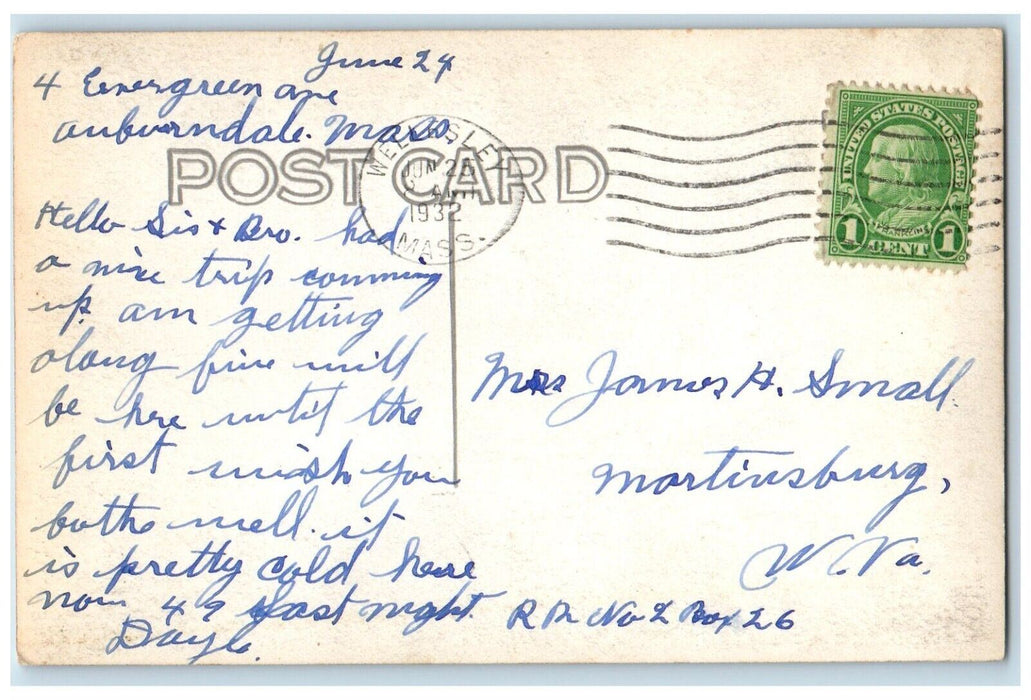 June 24
4 Evergreen ave
auburndale. Mass
POST CARD
WELLESLEY
JUN 25
1932
MASS.
UNITED STATES POSTAGE
FRANKLIN
1 CENT 1
Hello Sis & Bro. had
a nice trip comming
up. am getting
along fine will
be here until the
first wish you
bothe well. it
is pretty cold here
now 49 last night.
Mrs James H. Small.
Martinsburg,
W. Va.
R R No 2 Box 26